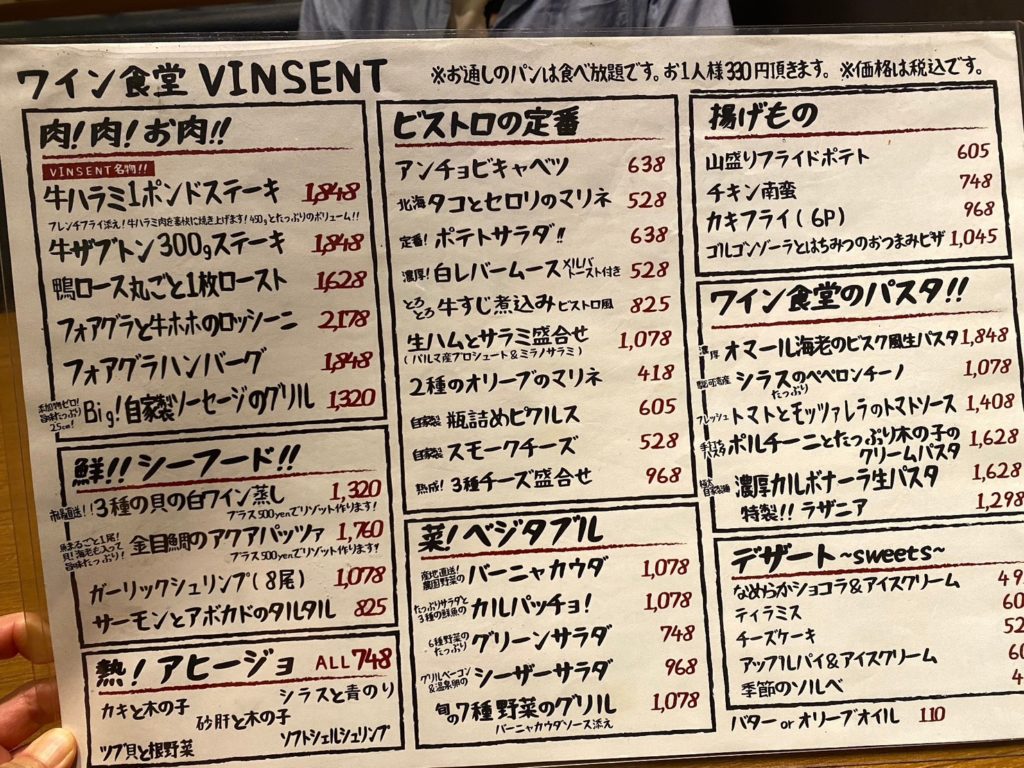 ワイン食堂 VINSENT
※お通しのパンは食べ放題です。お1人様330円頂きます。 ※価格は税込です。
肉!肉!お肉!!
VINSENT名物!!
牛ハラミ1ポンドステーキ 1,848
フレンチフライ添え!牛ハラミ肉を豪快に焼き上げます!450gとたっぷりのボリューム!!
牛ザブトン300gステーキ 1,848
鴨ロース丸ごと1枚ロースト 1,628
フォアグラと牛ホホのロッシーニ 2,178
フォアグラハンバーグ 1,848
添加物ゼロ!旨味たっぷり25cm! Big!自家製ソーセージのグリル 1,320
鮮!!シーフード!!
市場直送!!3種の貝の白ワイン蒸し 1,320
プラス500yenでリゾット作ります!
魚まるごと1尾!貝!海老も入って旨味たっぷり! 金目鯛のアクアパッツァ 1,760
プラス500yenでリゾット作ります!
ガーリックシュリンプ(8尾) 1,078
サーモンとアボカドのタルタル 825
熱!アヒージョ ALL748
カキと木の子
シラスと青のり
砂肝と木の子
ツブ貝と根野菜
ソフトシェルシュリンプ
ビストロの定番
アンチョビキャベツ 638
北海タコとセロリのマリネ 528
定番!ポテトサラダ!! 638
濃厚!白レバームース メルバトースト付き 528
とろとろ牛すじ煮込み ビストロ風 825
生ハムとサラミ盛合せ 1,078
(パルマ産プロシュート&ミラノサラミ)
2種のオリーブのマリネ 418
自家製 瓶詰めピクルス 605
自家製 スモークチーズ 528
熟成!3種チーズ盛合せ 968
菜!ベジタブル
産地直送!農園野菜の バーニャカウダ 1,078
たっぷりサラダと3種の鮮魚の カルパッチョ! 1,078
6種野菜のたっぷり グリーンサラダ 748
グリルベーコン&温泉卵の シーザーサラダ 968
旬の7種野菜のグリル 1,078
バーニャカウダソース添え
揚げもの
山盛りフライドポテト 605
チキン南蛮 748
カキフライ(6P) 968
ゴルゴンゾーラとはちみつのおつまみピザ 1,045
ワイン食堂のパスタ!!
濃厚 オマール海老のビスク風生パスタ 1,848
シラスのたっぷりペペロンチーノ 1,078
フレッシュトマトとモッツァレラのトマトソース 1,408
手打ちパスタ ポルチーニとたっぷり木の子の
クリームパスタ 1,628
濃厚カルボナーラ生パスタ 1,628
特製!!ラザニア 1,298
デザート~sweets~
なめらかショコラ&アイスクリーム 49
ティラミス 60
チーズケーキ 52
アップルパイ&アイスクリーム 60
季節のソルベ 4
バター or オリーブオイル 110